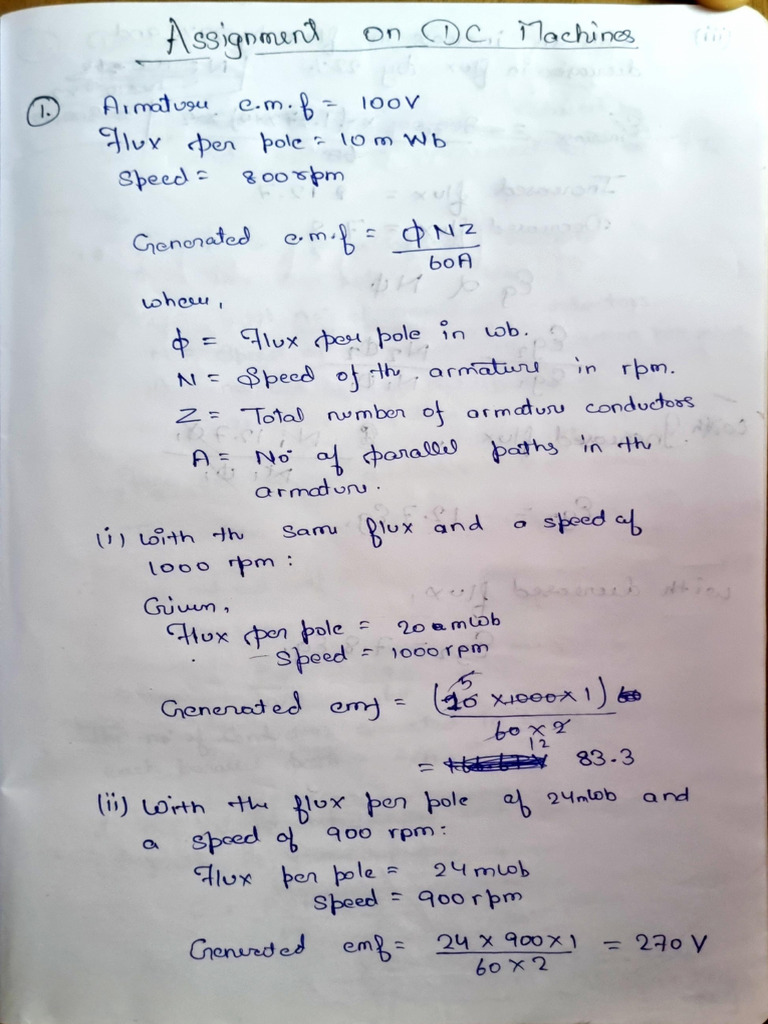 Assignment on DC Machines
1. Armature e.m.f = 100V
Flux per pole = 10 m Wb
Speed = 800 rpm
Generated e.m.f = ϕ N Z
60A
where,
ϕ = Flux per pole in wb.
N = Speed of th armature in rpm.
Z = Total number of armature conductors
A = No of parallel paths in th
armature.
(i) With th same flux and a speed of
1000 rpm :
Given,
Flux per pole = 20 mwb
Speed = 1000 rpm
5
Generated emf = (20 × 1000 × 1)
60 × 2
12
= 83.3
(ii) With the flux per pole of 24mwb and
a speed of 900 rpm :
Flux per pole = 24 mwb
Speed = 900 rpm
Generated emf = 24 × 900 × 1 = 270 V
60 × 2